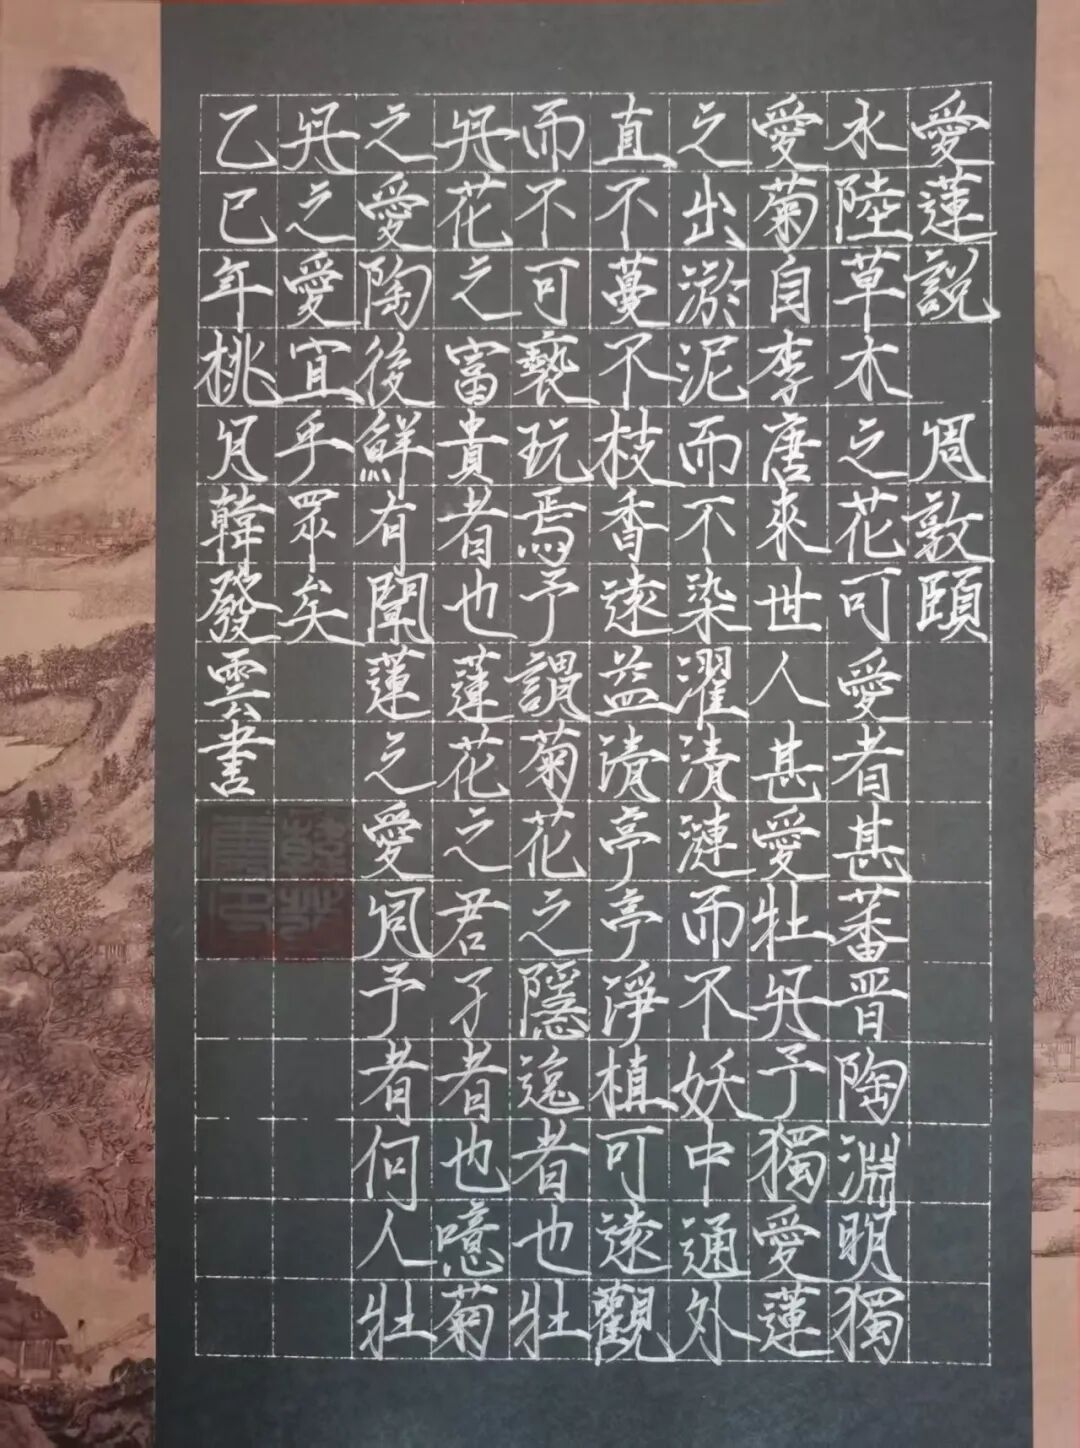 愛蓮說 周敦頤
水陸草木之花可愛者甚蕃晋陶淵明獨
愛菊自李唐來世人甚愛牡丹予獨愛蓮
之出淤泥而不染濯清漣而不妖中通外
直不蔓不枝香遠益清亭亭淨植可遠觀
而不可褻玩焉予謂菊花之隱逸者也牡
丹花之富貴者也蓮花之君子者也噫菊
之愛陶後鮮有聞蓮之愛同予者何人牡
丹之愛宜乎眾矣
乙巳年桃月韓發雲書